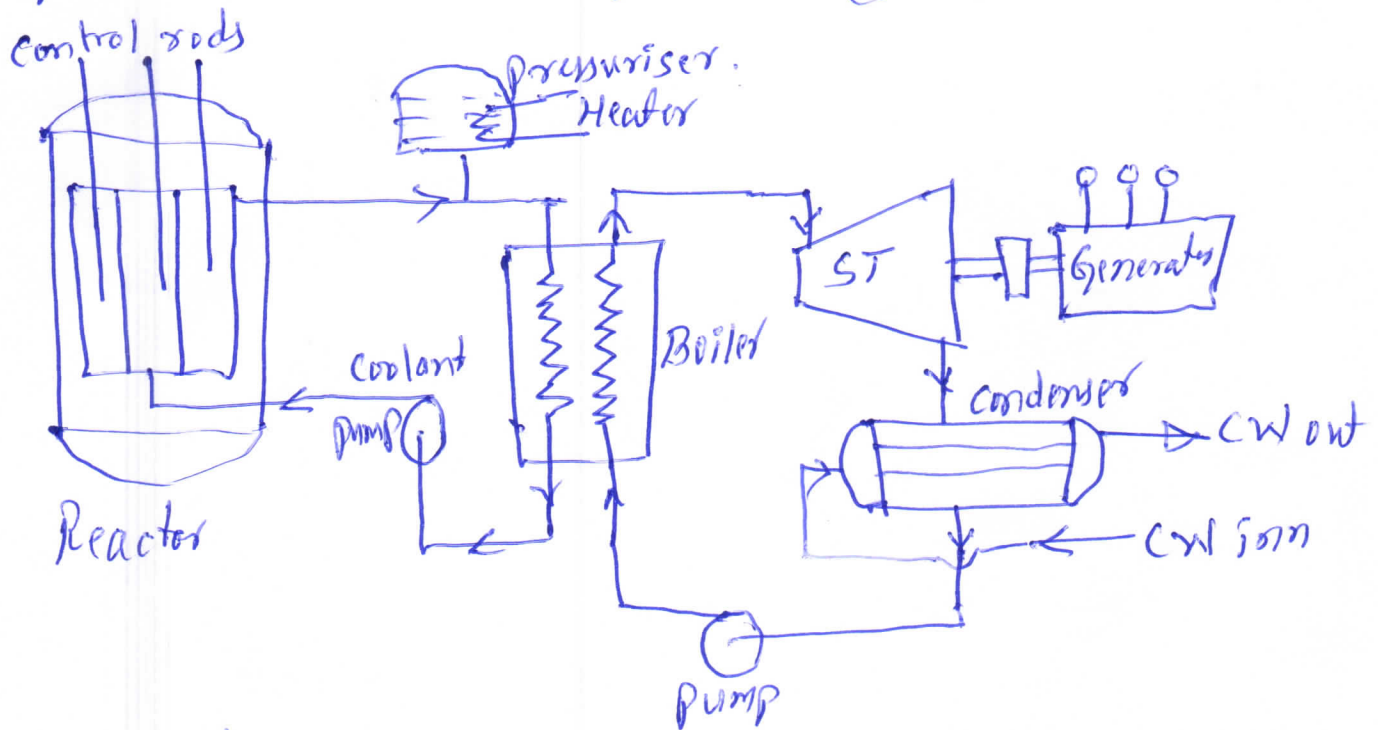 control rods
Pressuriser.
Heater
ST
Generator
Boiler
Coolant
pump
Condenser
CW out
Reactor
CW inn
Pump